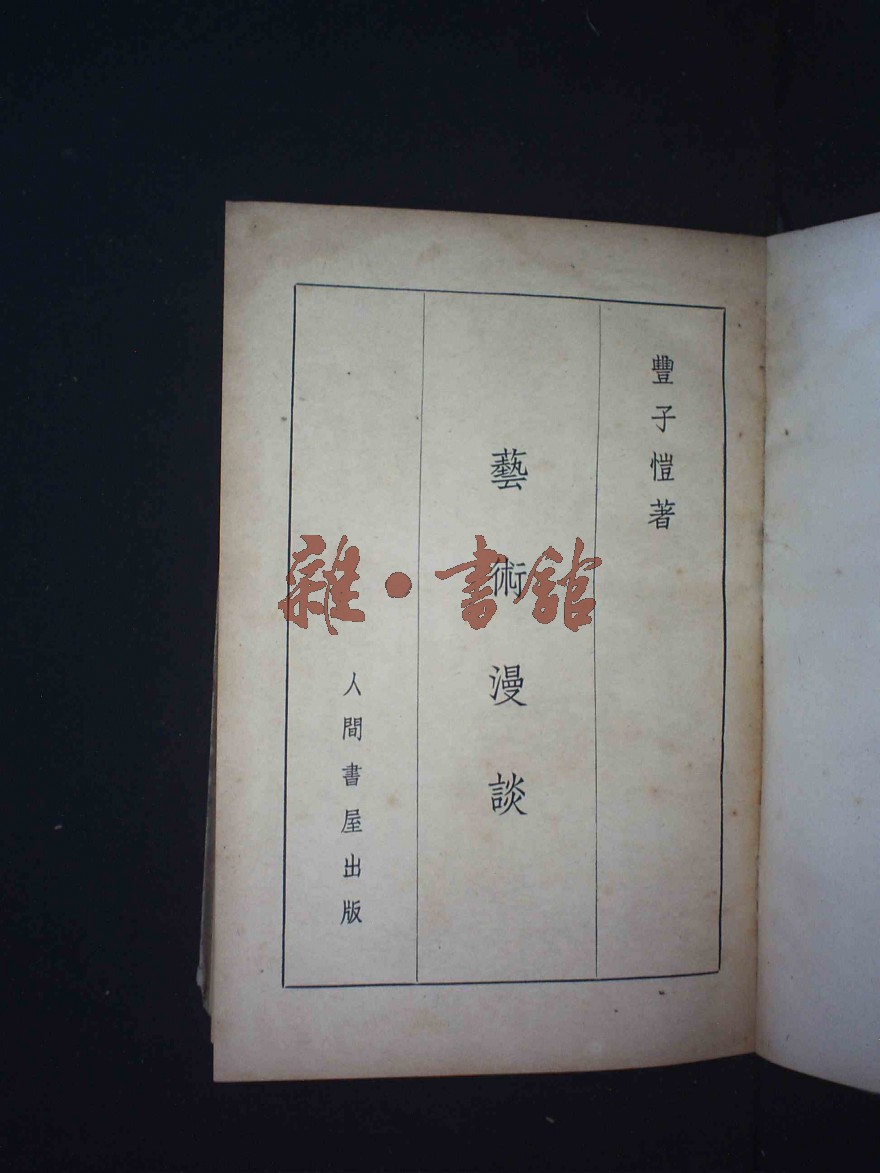 豐子愷著
藝術漫談
人間書屋出版
雜·書館